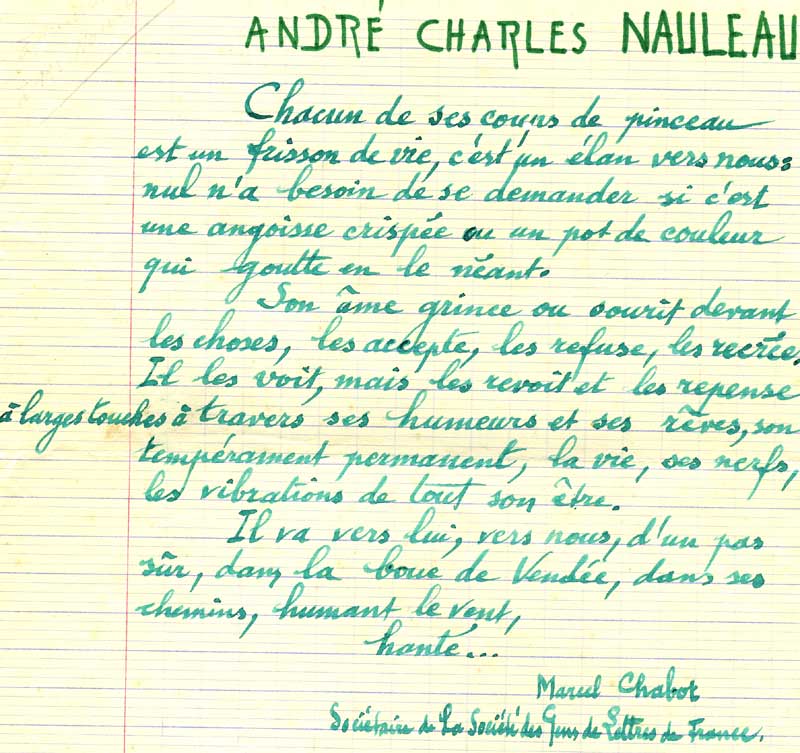 ANDRÉ CHARLES NAULEAU
Chacun de ses coups de pinceau
est un frisson de vie, c'est un élan vers nous:
nul n'a besoin de se demander si c'est
une angoisse crispée ou un pot de couleur
qui goutte en le néant.
Son âme grince ou sourit devant
les choses, les accepte, les refuse, les recrée,
Il les voit, mais les revoit et les repense
à larges touches à travers ses humeurs et ses rêves, son
tempérament permanent, la vie, ses nerfs,
les vibrations de tout son être.
Il va vers lui, vers nous, d'un pas
sûr, dans la boue de Vendée, dans ses
chemins, humant le vent,
hanté...
Marcel Chabot
Sociétaire de La Société des Gens de Lettres de France.